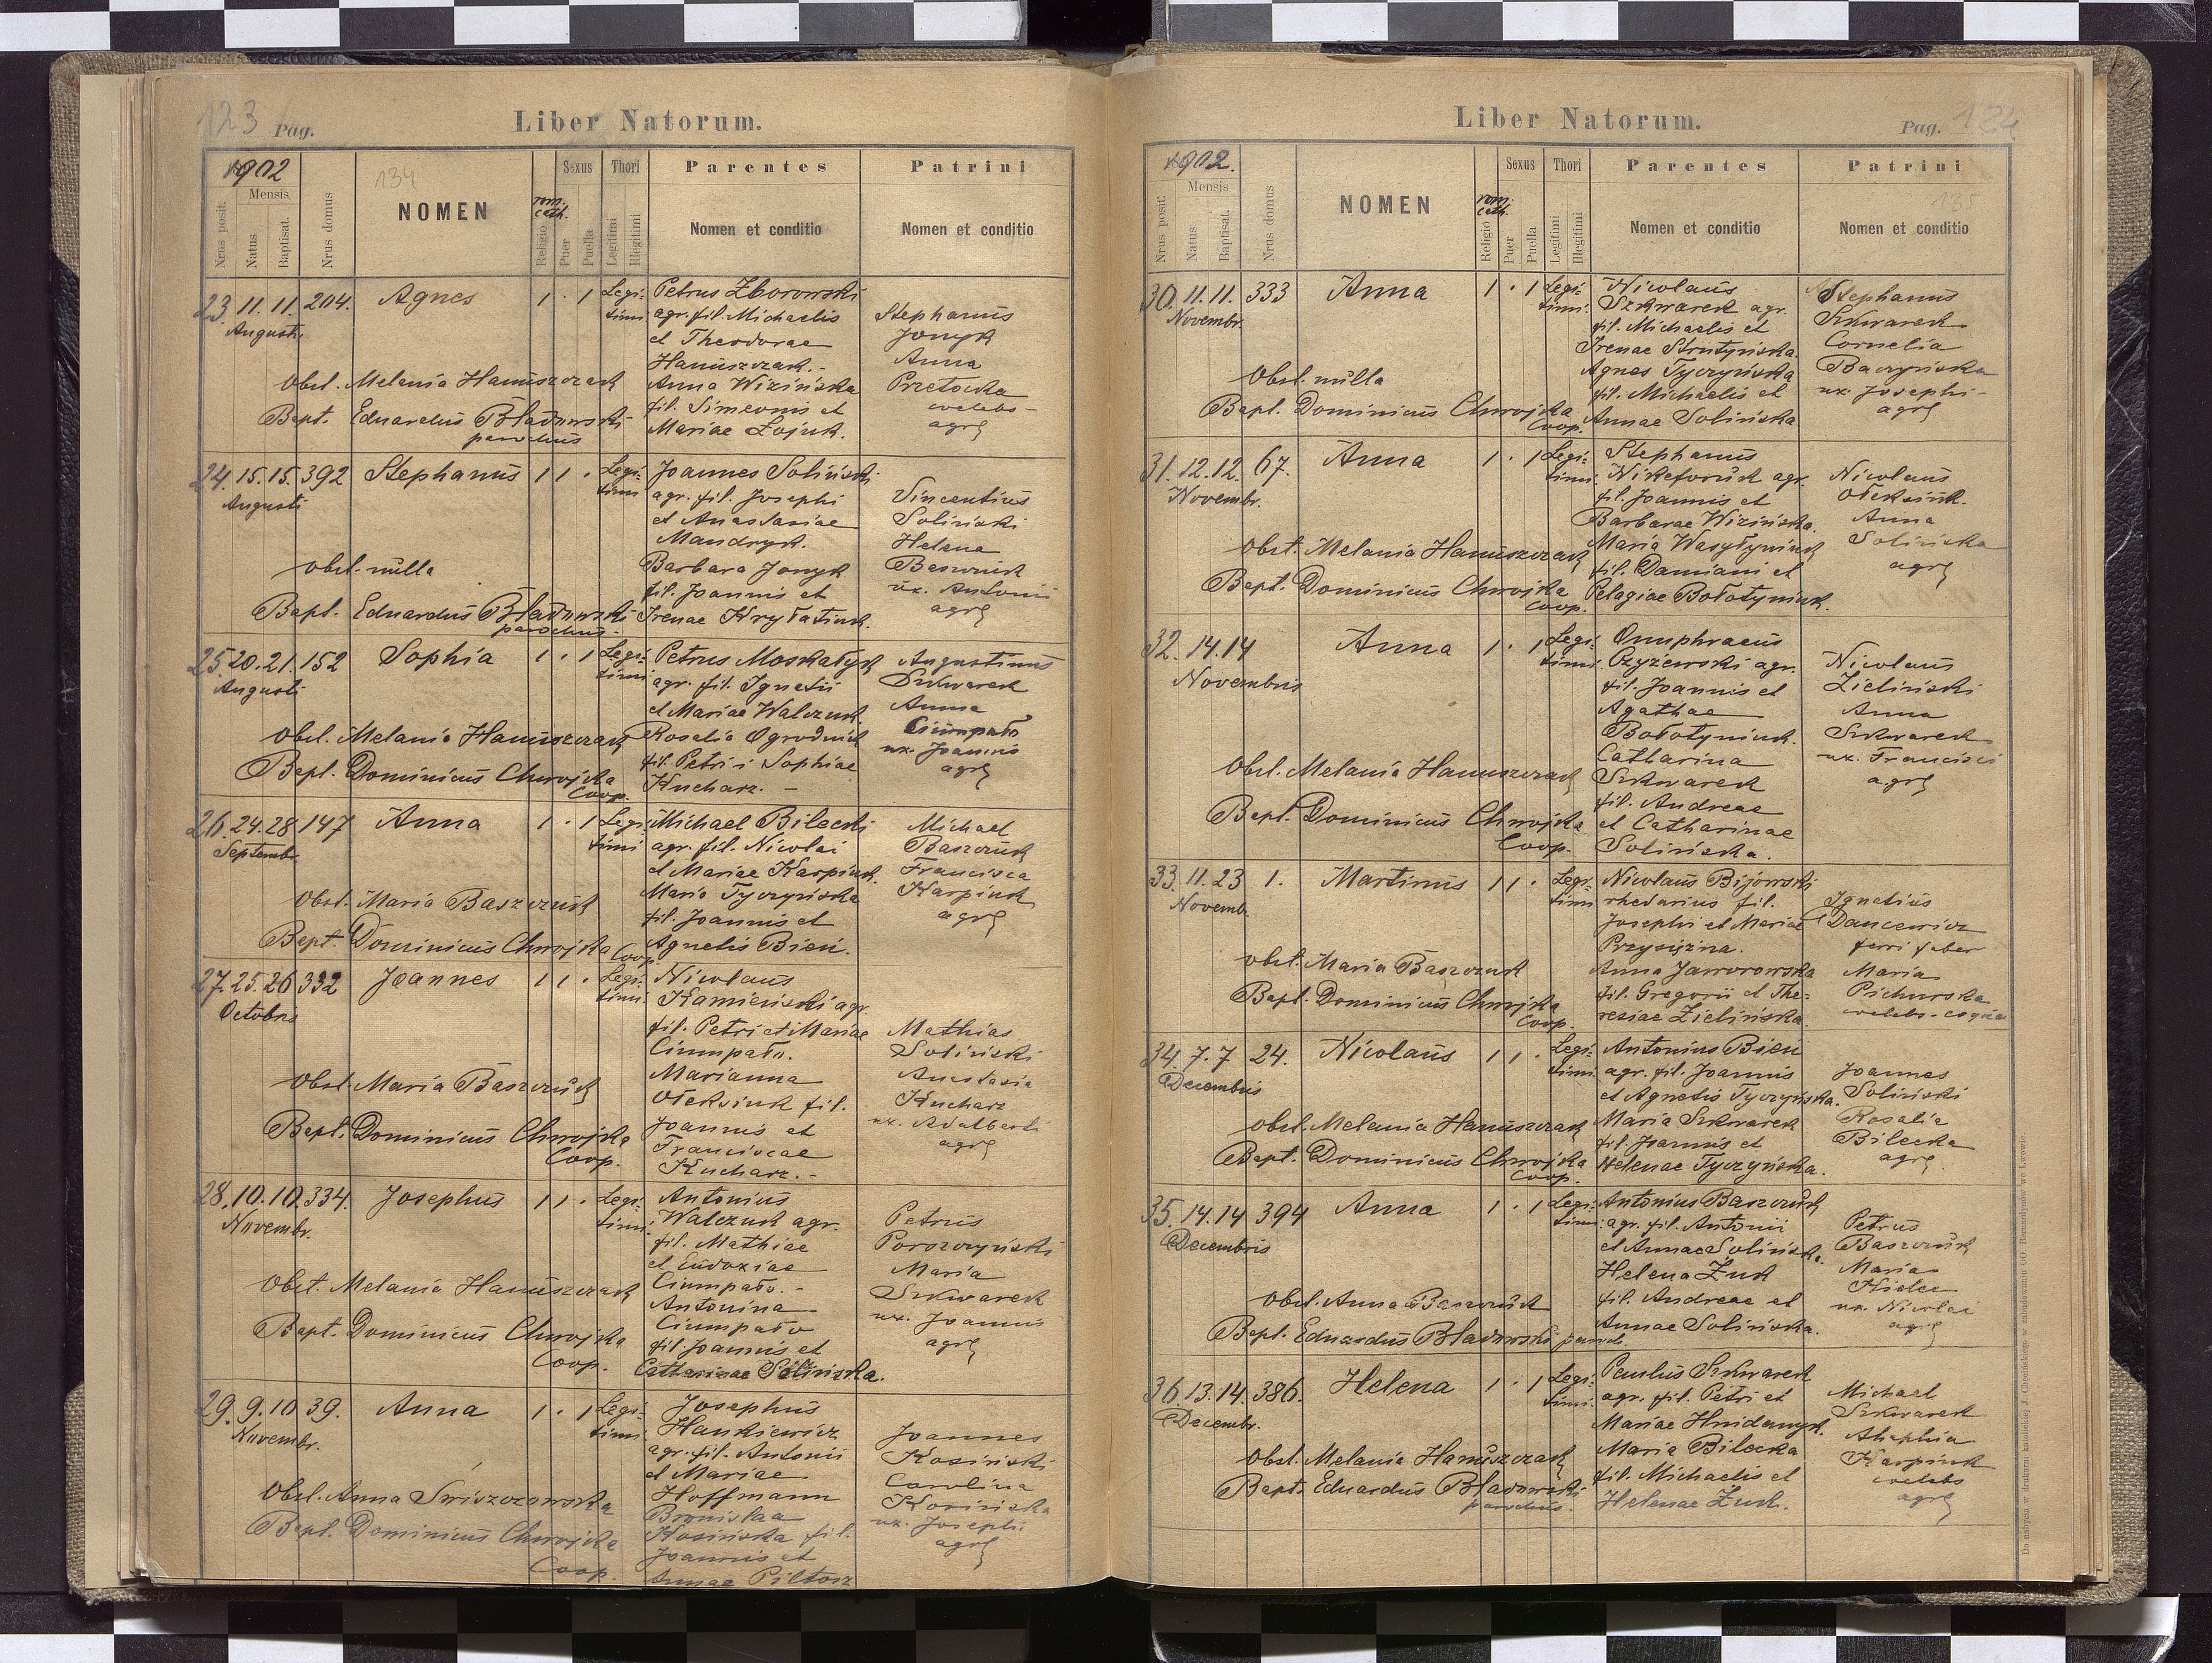 123 Pag.
Liber Natorum.
1902
134
Nrus posit.
Mensis
Natus
Baptisat.
Nrus domus
NOMEN
rom. cath.
Religio
Sexus
Puer
Puella
Thori
Legitimi
Illegitimi
Parentes
Nomen et conditio
Patrini
Nomen et conditio
23. 11. 11. 204. Agnes 1 · 1 Legi-
timi
Augusti
Petrus Zborowski
agr. fil. Michaelis
et Theodorae
Hanuszczak.-
Anna Wizińska
fil. Simeonis et
Mariae Łojuk.
Stephanus
Jonyk
Anna
Przetocka
coelebs-
agr
Obst. Melania Hanuszczak
Bapt. Eduardus Bładowski
parochus
24. 15. 15. 392 Stephanus 1 1 · Legi-
timi
Augusti
Joannes Soliński
agr. fil. Josephi
et Anastasiae
Mandryk.
Barbara Jonyk
fil. Joannis et
Irenae Hryłatiuk.
Vincentius
Soliński
Helena
Baszczuk
ux. Antoni
agr
Obst. nulla
Bapt. Eduardus Bładowski
parochus-
25. 20. 21. 152 Sophia 1 · 1 Legi-
timi
Augusti
Petrus Moskałyk
agr. fil. Ignatii
et Mariae Walczuk.
Rosalia Ogrodnik
fil. Petri i Sophiae
Kucharz. -
Augustinus
Szkwarek
Anna
Ciumpało
ux. Joannis
agr
Obst. Melania Hanuszczak
Bapt. Dominicus Chwojka
Coop.
26. 24. 28 147 Anna 1 · 1 Legi-
timi
Septembr.
Michael Bilecki
agr. fil. Nicolai
et Mariae Karpiuk.
Maria Tyczyńska
fil. Joannis et
Agnetis Bień.
Michael
Baszczuk
Francisca
Karpiuk
agr
Obst. Maria Baszczuk
Bapt. Dominicus Chwojka
Coop
27. 25. 26 332 Joannes 1 1 · Legi-
timi
Octobris
Nicolaus
Kamieński agr.
fil. Petri et Mariae
Ciumpało.
Marianna
Ołeksiuk fil.
Joannis et
Franciscae
Kucharz.-
Mathias
Soliński
Anastasia
Kucharz
ux. Adalberti
agr
Obst. Maria Baszczuk
Bapt. Dominicus Chwojka
Coop.
28. 10. 10. 334. Josephus 1 1 · Legi-
timi
Novembr.
Antonius
Walczuk agr.
fil. Mathiae
et Eudoxiae
Ciumpało. -
Antonina
Ciumpało
fil. Joannis et
Catharinae Solińska.
Petrus
Poroszyński
Maria
Szkwarek
ux. Joannis
agr
Obst. Melania Hanuszczak
Bapt. Dominicus Chwojka
Coop.
29. 9. 10 39. Anna 1 · 1 Legi-
timi
Novembr.
Josephus
Hankiewicz
agr. fil. Antonii
et Mariae
Hoffmann
Bronisłaa
Kosińska fil.
Joannis et
Annae Piltosz
Joannes
Kosiński
Carolina
Kosińska
ux. Josephi
agr
Obst. Anna Świszczowska
Bapt. Dominicus Chwojka
Coop.
Liber Natorum.
Pag. 124
1902.
Nrus posit.
Mensis
Natus
Baptisat.
Nrus domus
NOMEN
rom. cath.
Religio
Sexus
Puer
Puella
Thori
Legitimi
Illegitimi
Parentes
Nomen et conditio
Patrini
Nomen et conditio
30. 11. 11. 333 Anna 1 · 1 Legi-
timi.
Novembr.
Nicolaus
Szkwarek agr.
fil. Michaelis et
Irenae Strutyńska.
Agnes Tyczyńska
fil. Michaelis et
Annae Solińska
Stephanus
Szkwarek
Cornelia
Baczyńska
ux. Josephi-
agr
Obst. nulla
Bapt. Dominicus Chwojka
Coop.
31. 12. 12. 67. Anna 1 · 1 Legi-
timi
Novembr.
Stephanus
Nikeforuk agr.
fil. Joannis et
Barbarae Wizińska.
Maria Wasyłyniuk
fil. Damiani et
Pelagiae Bołotyniuk.
Nicolaus
Ołeksiuk.
Anna
Solińska
agr
Obst. Melania Hanuszczak
Bapt. Dominicus Chwojka
Coop.
32. 14. 14 Anna 1 · 1 Legi-
timi
Novembris
Onuphraeus
Czyżewski agr.
fil. Joannis et
Agathae
Bołotyniuk.
Catharina
Szkwarek
fil. Andreae
et Catharinae
Solińska.
Nicolaus
Zieliński
Anna
Szkwarek
ux. Francisci
agr
Obst. Melania Hanuszczak
Bapt. Dominicus Chwojka
Coop.
33. 11. 23 1. Martinus 1 1 · Legi-
timi
Novemb.
Nicolaus Bijowski
rhedarius fil.
Josephi et Mariae
Przysiężna.
Anna Jaworowska
fil. Gregorii et The-
resiae Zielińska.
Ignatius
Dancewicz
ferri faber
Maria
Pichurska
coelebs-
Obst. Maria Baszczuk
Bapt. Dominicus Chwojka
Coop.
34. 7. 7 24. Nicolaus 1 1 · Legi-
timi
Decembris
Antonius Bień
agr. fil. Joannis
et Agnetis Tyczyńska.
Maria Szkwarek
fil. Joannis et
Helenae Tyczyńska.
Joannes
Soliński
Rosalia
Bilecka
agr
Obst. Melania Hanuszczak
Bapt. Dominicus Chwojka
Coop.
35. 14. 14 394 Anna 1 · 1 Legi-
timi
Decembris
Antonius Baszczuk
agr. fil. Antonii
et Annae Solińska.
Helena Żuk
fil. Andreae et
Annae Solińska.
Petrus
Baszczuk
Maria
Kielec
ux. Nicolai
agr
Obst. Anna Baszczuk
Bapt. Eduardus Bładowski paroch.
36. 13. 14. 386. Helena 1 · 1 Legi-
timi.
Decembr.
Paulus Szkwarek
agr. fil. Petri et
Mariae Hnidamyk.
Maria Bilecka
fil. Michaelis et
Helenae Żuk.
Michael
Szkwarek
Ahaphia
Karpiuk
coelebs
agr
Obst. Melania Hanuszczak
Bapt. Eduardus Bładowski
parochus.
Do nabycia w drukarni katolickiej J. Chęcińskiego w zabudowaniu OO. Bernardynów we Lwowie.